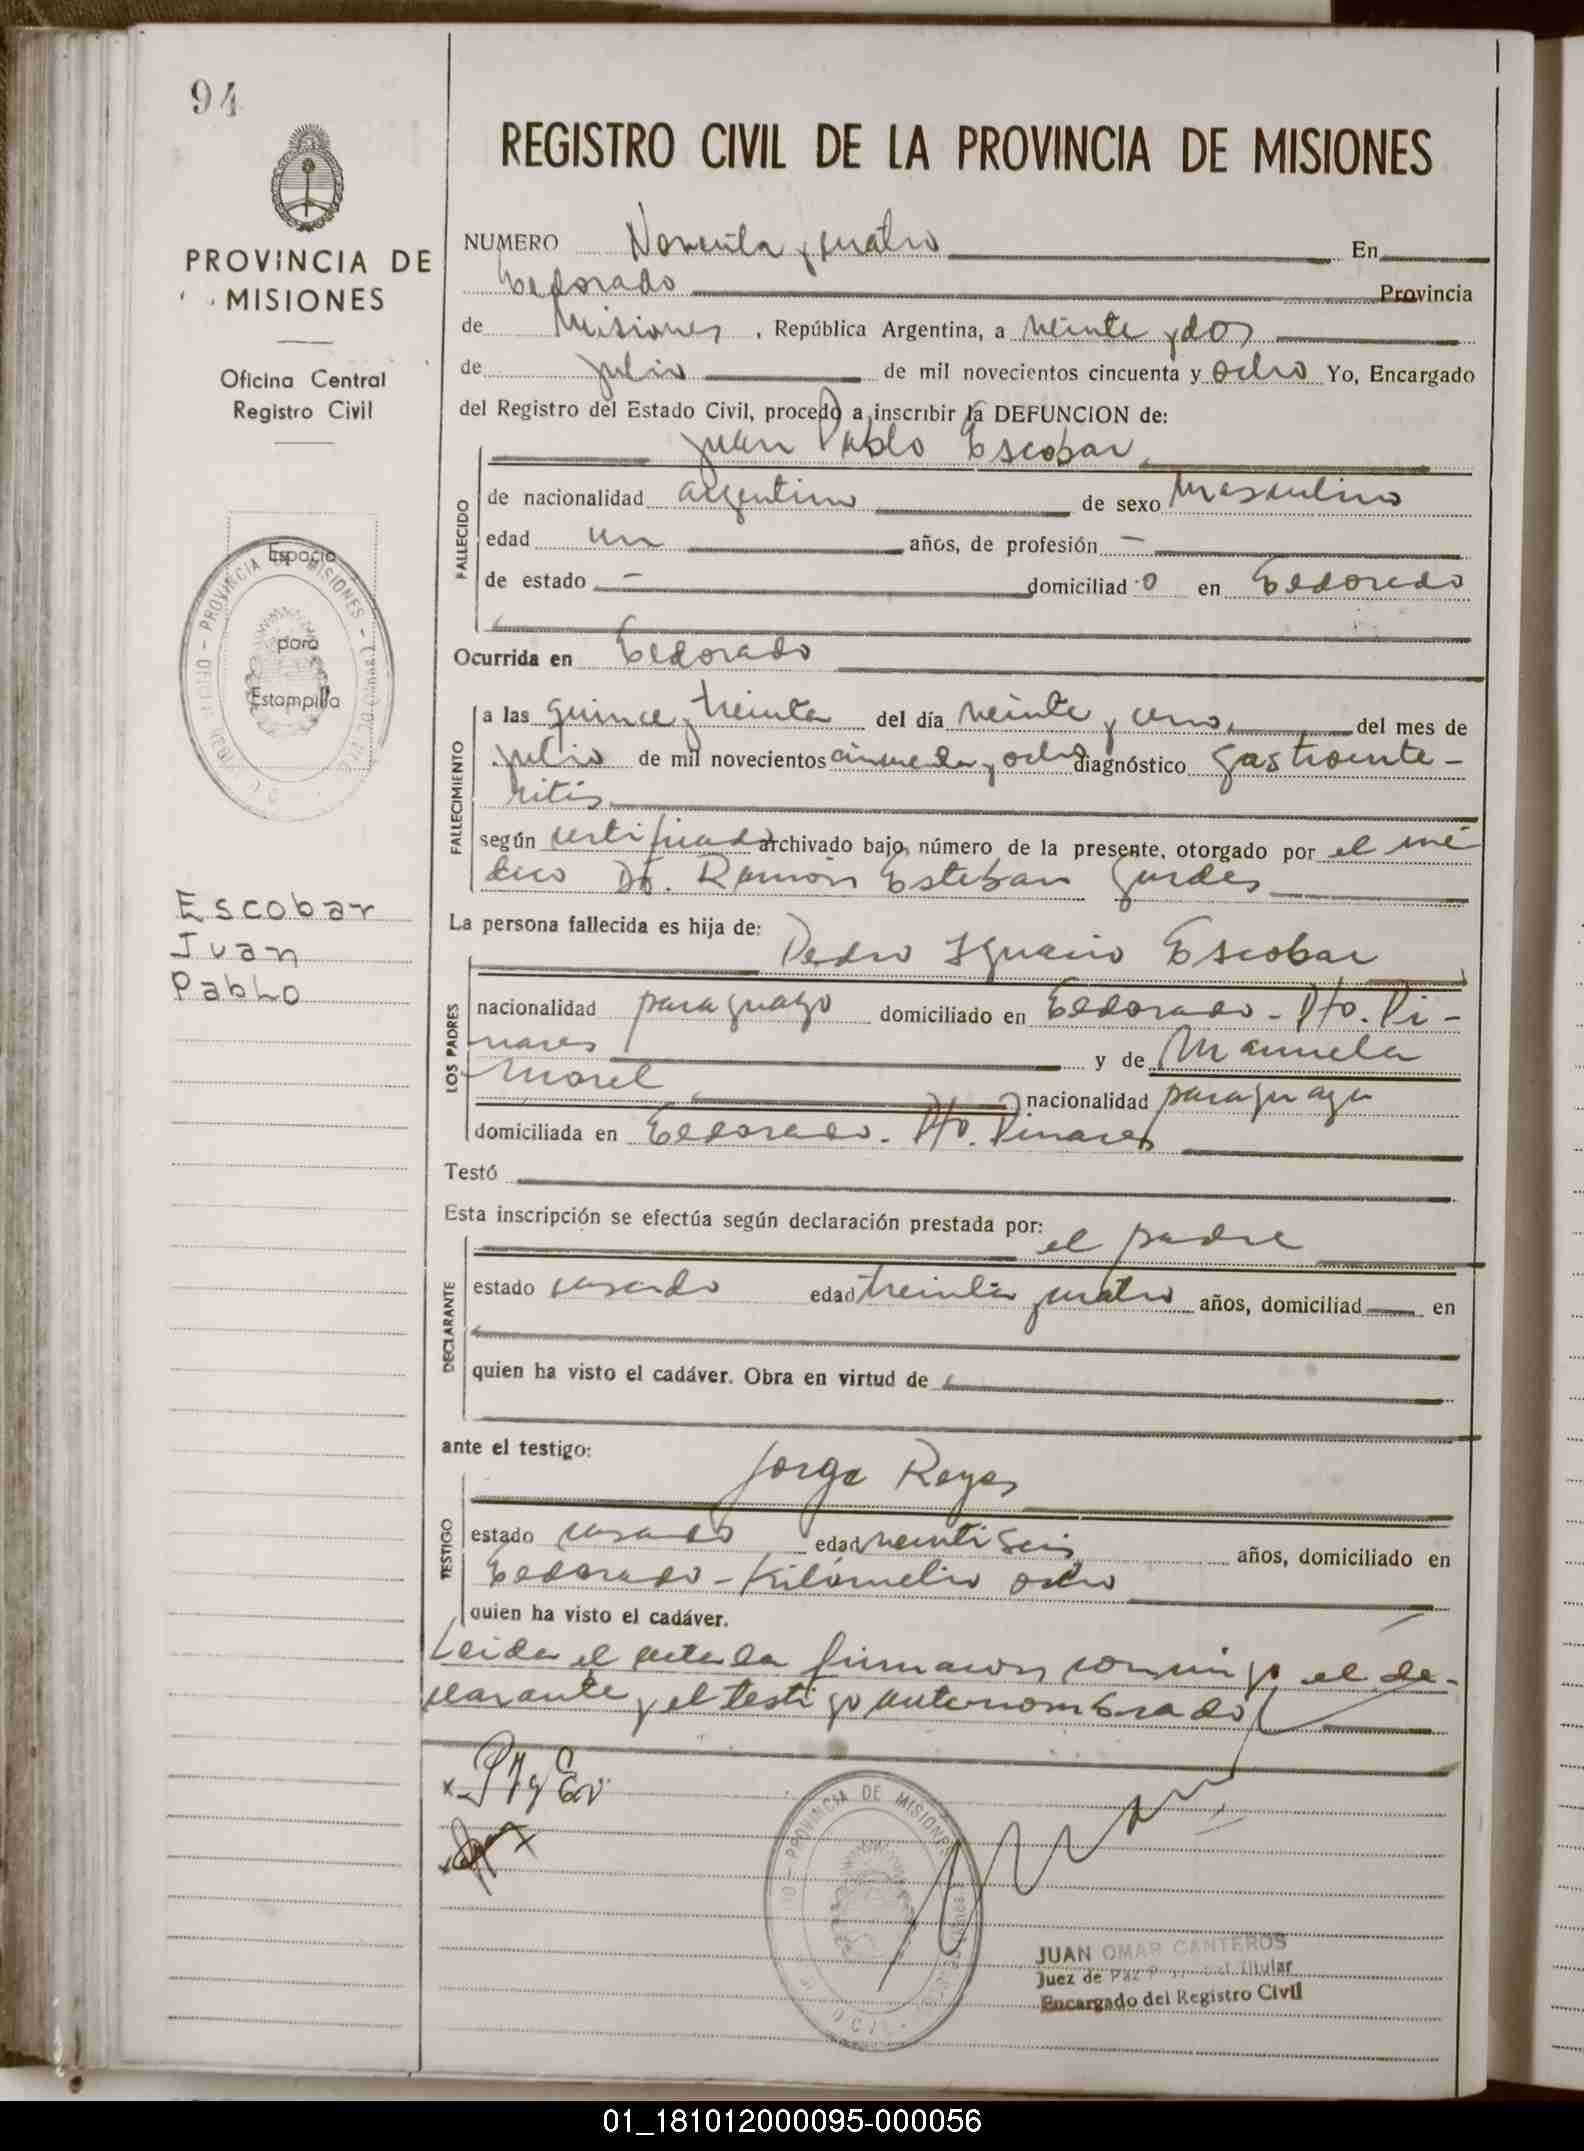 94
REGISTRO CIVIL DE LA PROVINCIA DE MISIONES
PROVINCIA DE
MISIONES
Oficina Central
Registro Civil
Espacio
para
Estampilla
Escobar
Juan
Pablo
NUMERO Noventa y cuatro En
Eldorado Provincia
de Misiones, República Argentina, a veinte y dos
de julio de mil novecientos cincuenta y ocho Yo, Encargado
del Registro del Estado Civil, procedo a inscribir la DEFUNCION de:
Juan Pablo Escobar
FALLECIDO
de nacionalidad argentino de sexo Masculino
edad un años, de profesión -
de estado - domiciliado en Eldorado
Ocurrida en Eldorado
FALLECIMIENTO
a las quince y treinta del día veinte y uno del mes de
julio de mil novecientos cincuenta y ocho diagnóstico gastroente-
ritis
según certificado archivado bajo número de la presente, otorgado por el mé
dico Dr. Ramón Esteban
La persona fallecida es hija de:
Pedro Ignacio Escobar
LOS PADRES
nacionalidad paraguayo domiciliado en Eldorado - Pto. Pi-
nares y de Manuela
Morel nacionalidad paraguaya
domiciliada en Eldorado - Pto. Pinares
Testó
Esta inscripción se efectúa según declaración prestada por:
el padre
DECLARANTE
estado casado edad treinta y cuatro años, domiciliad en
quien ha visto el cadáver. Obra en virtud de
ante el testigo:
Jorge Reyes
TESTIGO
estado casado edad veintiseis años, domiciliado en
Eldorado - Kilómetro ocho
quien ha visto el cadáver.
Leida el acta la firmaron conmigo el de-
clarante y el testigo antenombrado
PROVINCIA DE MISIONES
JUAN OMAR CANTEROS
Juez de Paz Titular
Encargado del Registro Civil
01_181012000095-000056